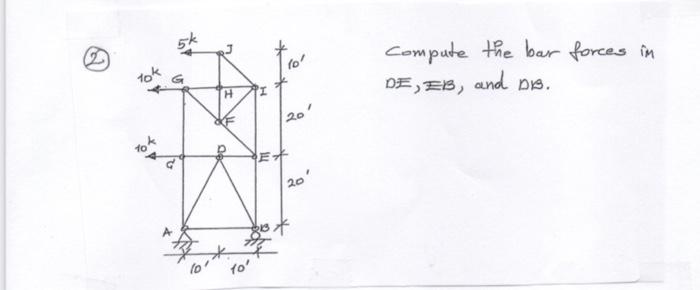 2
Compute the bar forces in
DE, EB, and DB.
5k
J
10'
10k
G
H
I
20'
F
10k
C
D
E
20'
A
B
10'
10'